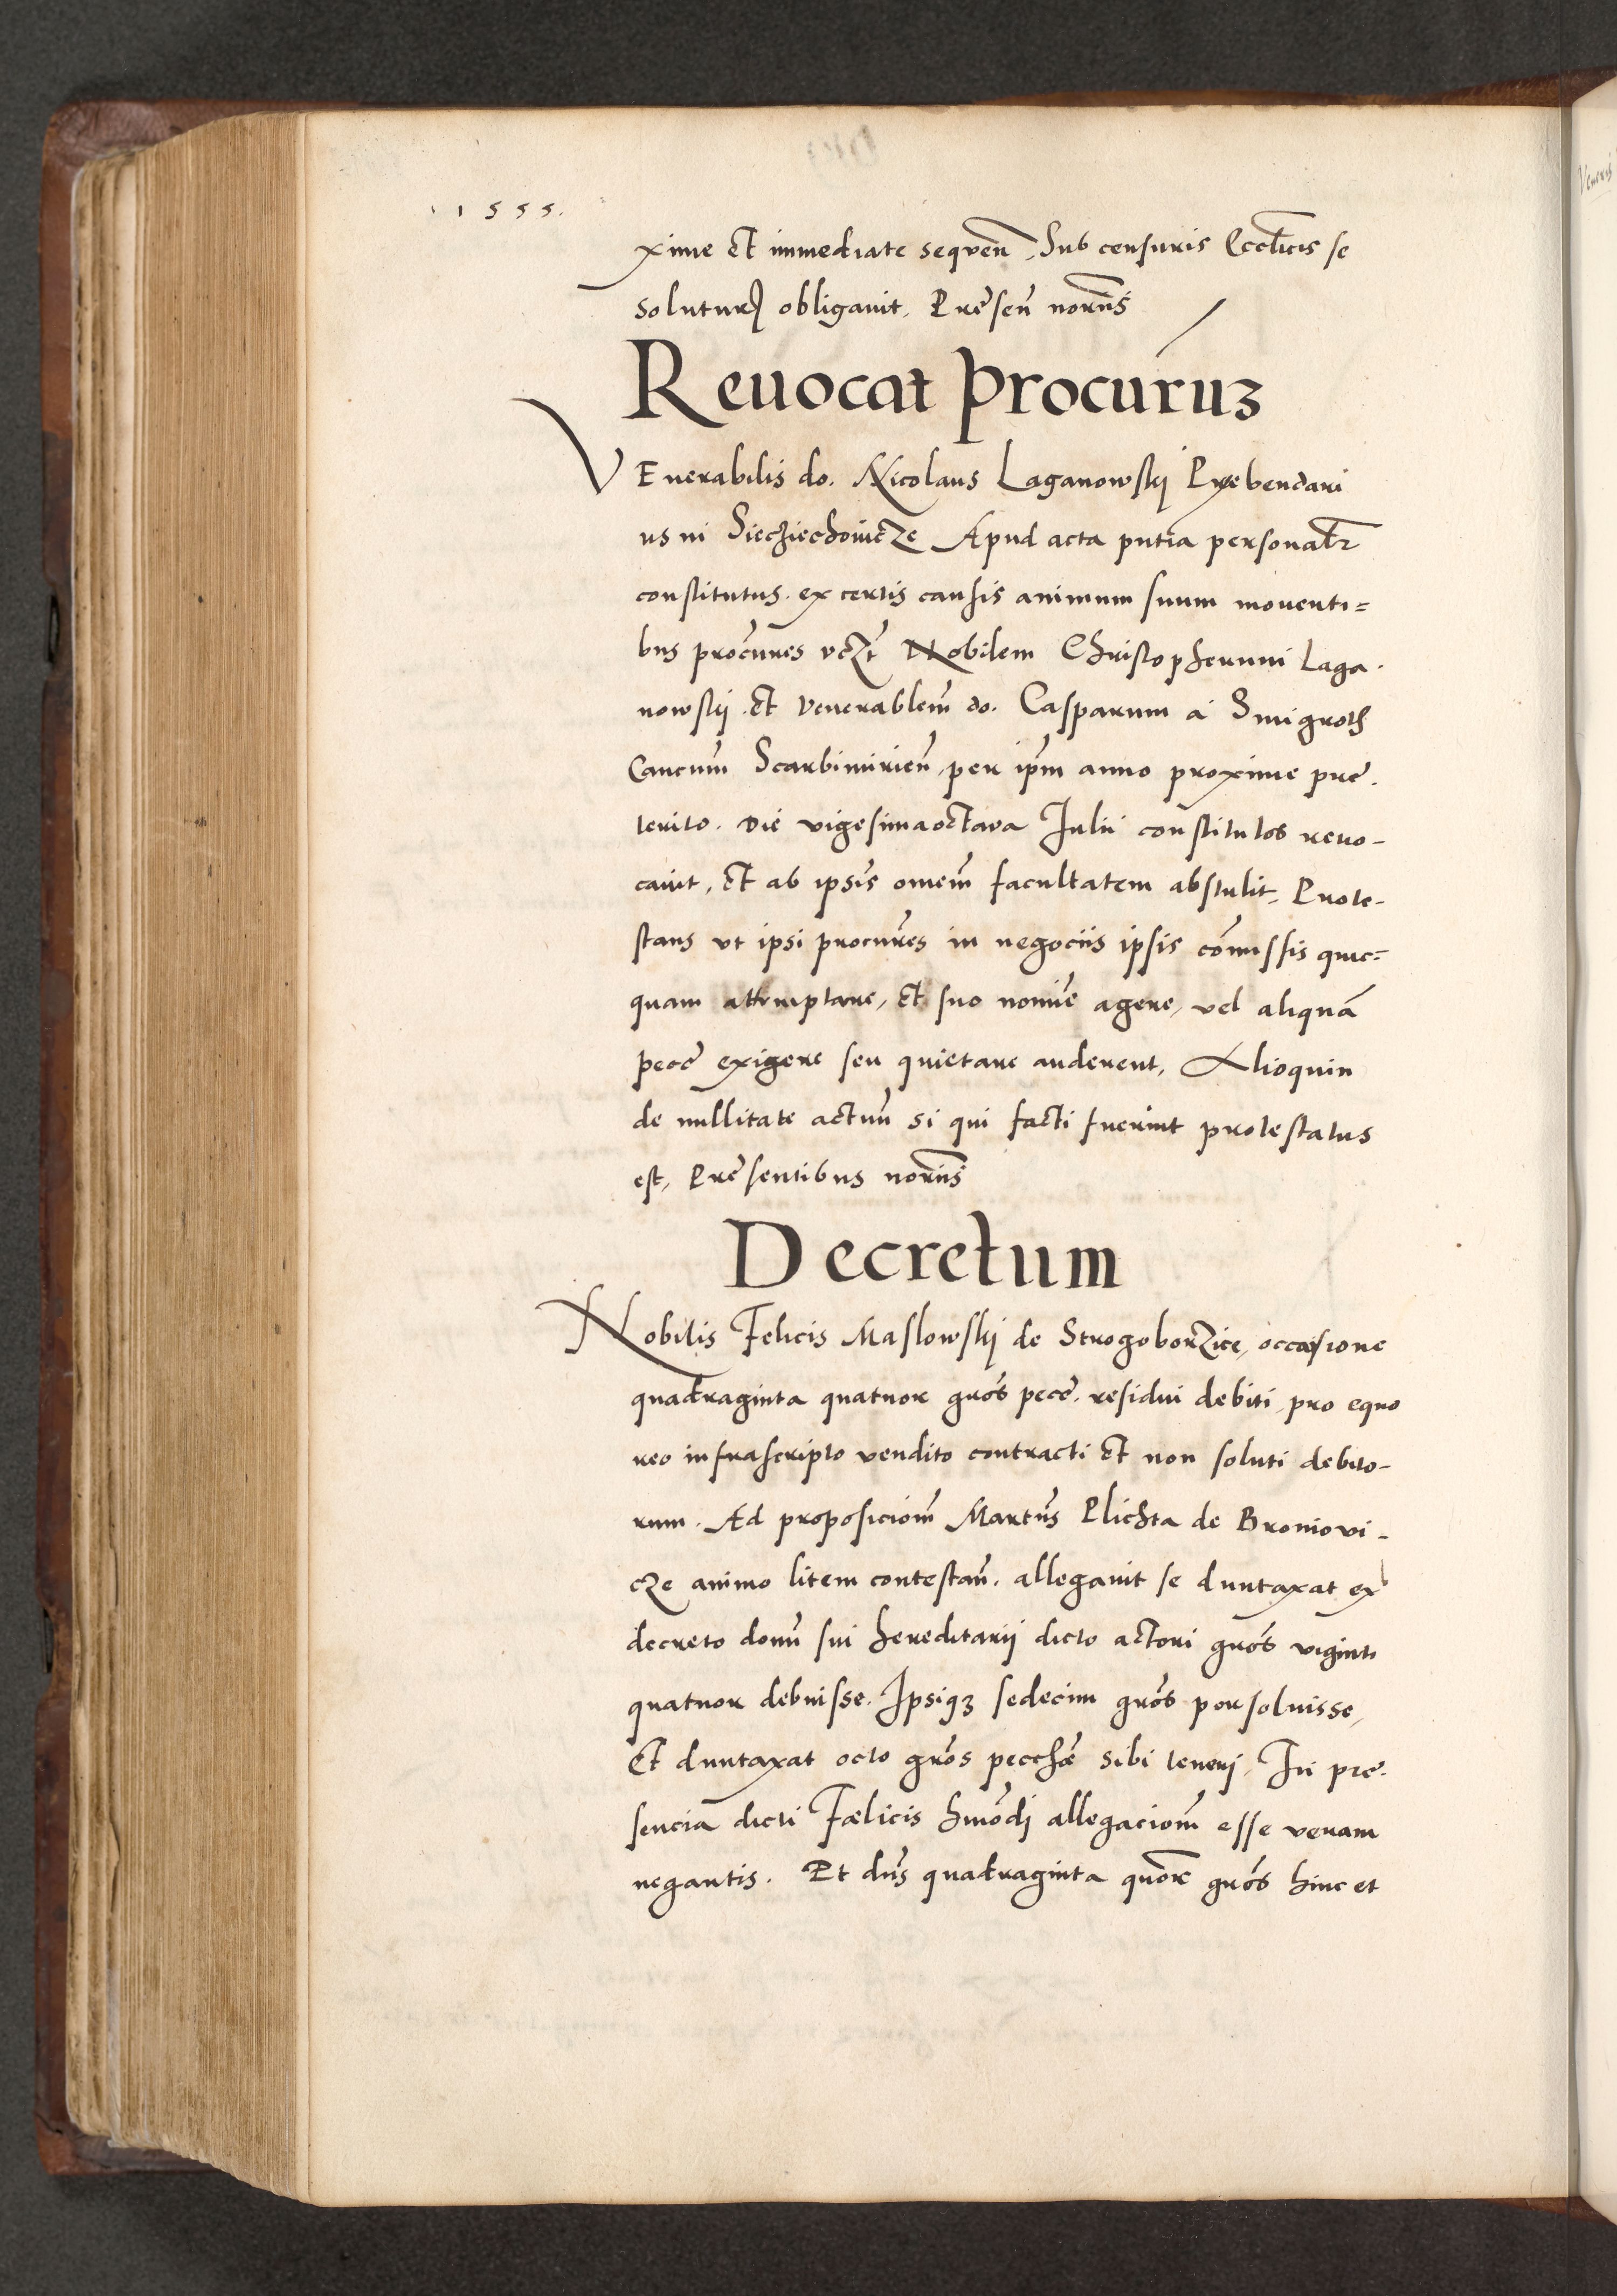 1555.
xime et immediate sequen̄, Sub censuris Eccl̄icis se
soluturū obligauit, Pręsen̄ norĩis
Reuocat procurũꝫ
VEnerabilis do. Nicolaus Laganowskÿ Prębendari
us in Siechiechowicze Apud acta pñtia personalr̄
constitutus. ex certis causis animum suum mouenti=
bus procũres vcꝫt Nobilem Christopherum Laga-
nowskÿ. et Venerablem̄ do. Casparum à Smigroth
Cancum̄ Scarbimirien̄, per ipm̄ anno proxime prę-
terito. die vigesimaoctava Julii constitutos reuo-
cauit, et ab ipsis omem̄ facultatem abstulit, Prote-
stans vt ipsi procurẽs in negociis ipsis cõmissis quic=
quam attemptare, et suo nomiẽ agere, vel aliquã
pecc̃ exigere seu quietare auderent, Alioquin
de nullitate actuũ si qui facti fuerint protestatus
est, Pręsentibus norĩis
Decretum
Nobilis Felicis Maslowskÿ de Strogoborzice, occasione
quadraginta quatuor grõs pecc̃. residui debiti, pro equo
reo infrascripto vendito contracti et non soluti debito-
rum. Ad proposiciom̄ Martñs Plichta de Broniovi-
cze animo litem contestan̄. allegauit se duntaxat ex
decreto domñ sui hereditarij dicto actori grõs viginti
quatuor debuisse. Ipsiqꝫ sedecim grõs persoluisse,
Et duntaxat octo grõs pecchẽ sibi tenerj, In prę-
sencia dicti Fælicis hmõdj allegaciom̄ esse veram
negantis. Et dũs quadraginta quõr grõs hinc et